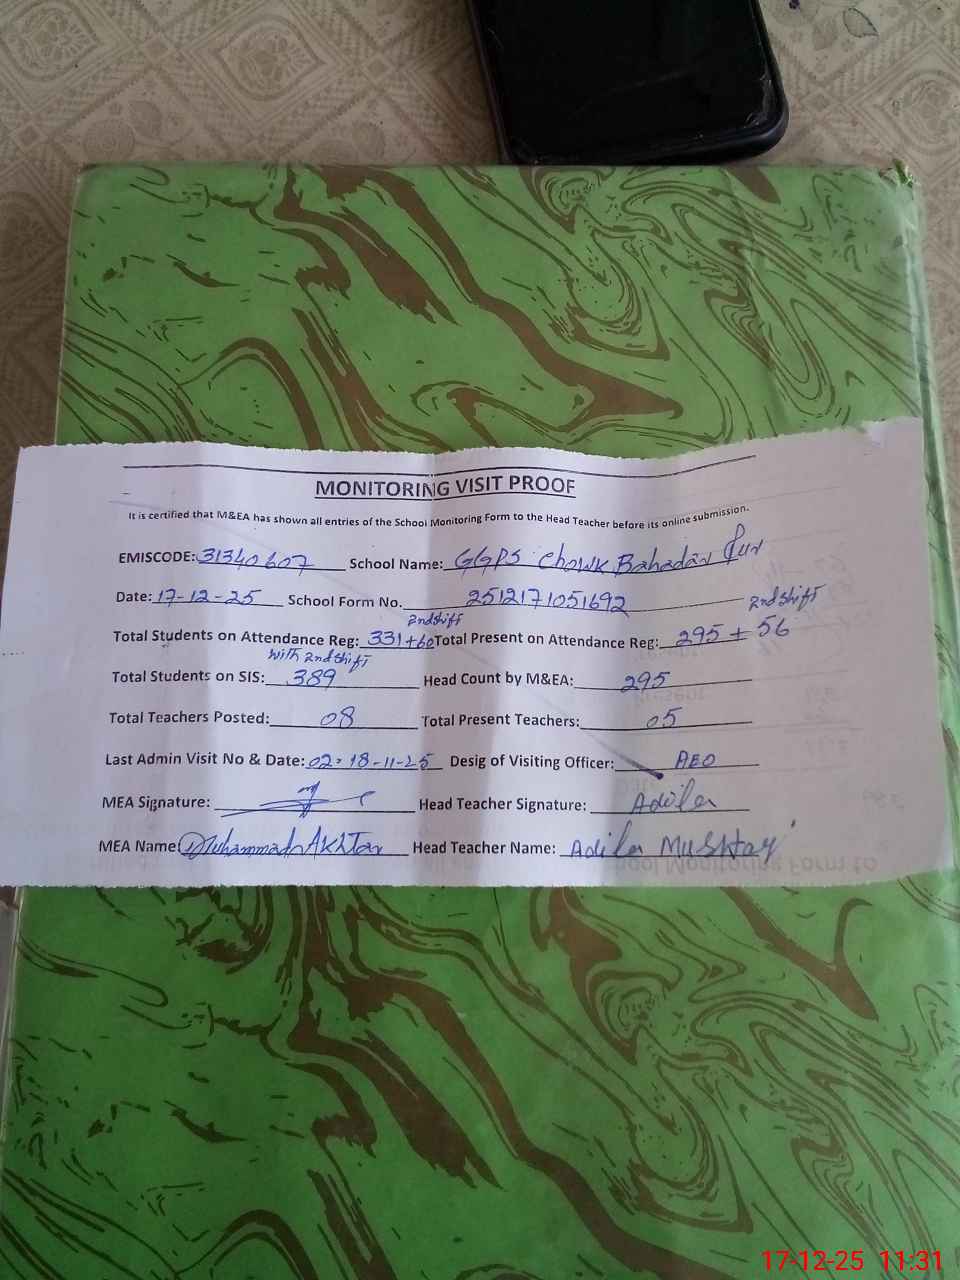 MONITORING VISIT PROOF
It is certified that M&EA has shown all entries of the School Monitoring Form to the Head Teacher before its online submission.
EMISCODE: 31340607 School Name: GGPS Chowk Bahadar Pur
Date: 17-12-25 School Form No. 2512171051692
Total Students on Attendance Reg: 331+60 2nd shift Total Present on Attendance Reg: 295 + 56 2nd shift
Total Students on SIS: 389 with 2nd shift Head Count by M&EA: 295
Total Teachers Posted: 08 Total Present Teachers: 05
Last Admin Visit No & Date: 02. 18-11-25 Desig of Visiting Officer: AEO
MEA Signature: Head Teacher Signature: Adila
MEA Name: Muhammad Akhtar Head Teacher Name: Adila Mushtaq
17-12-25 11:31